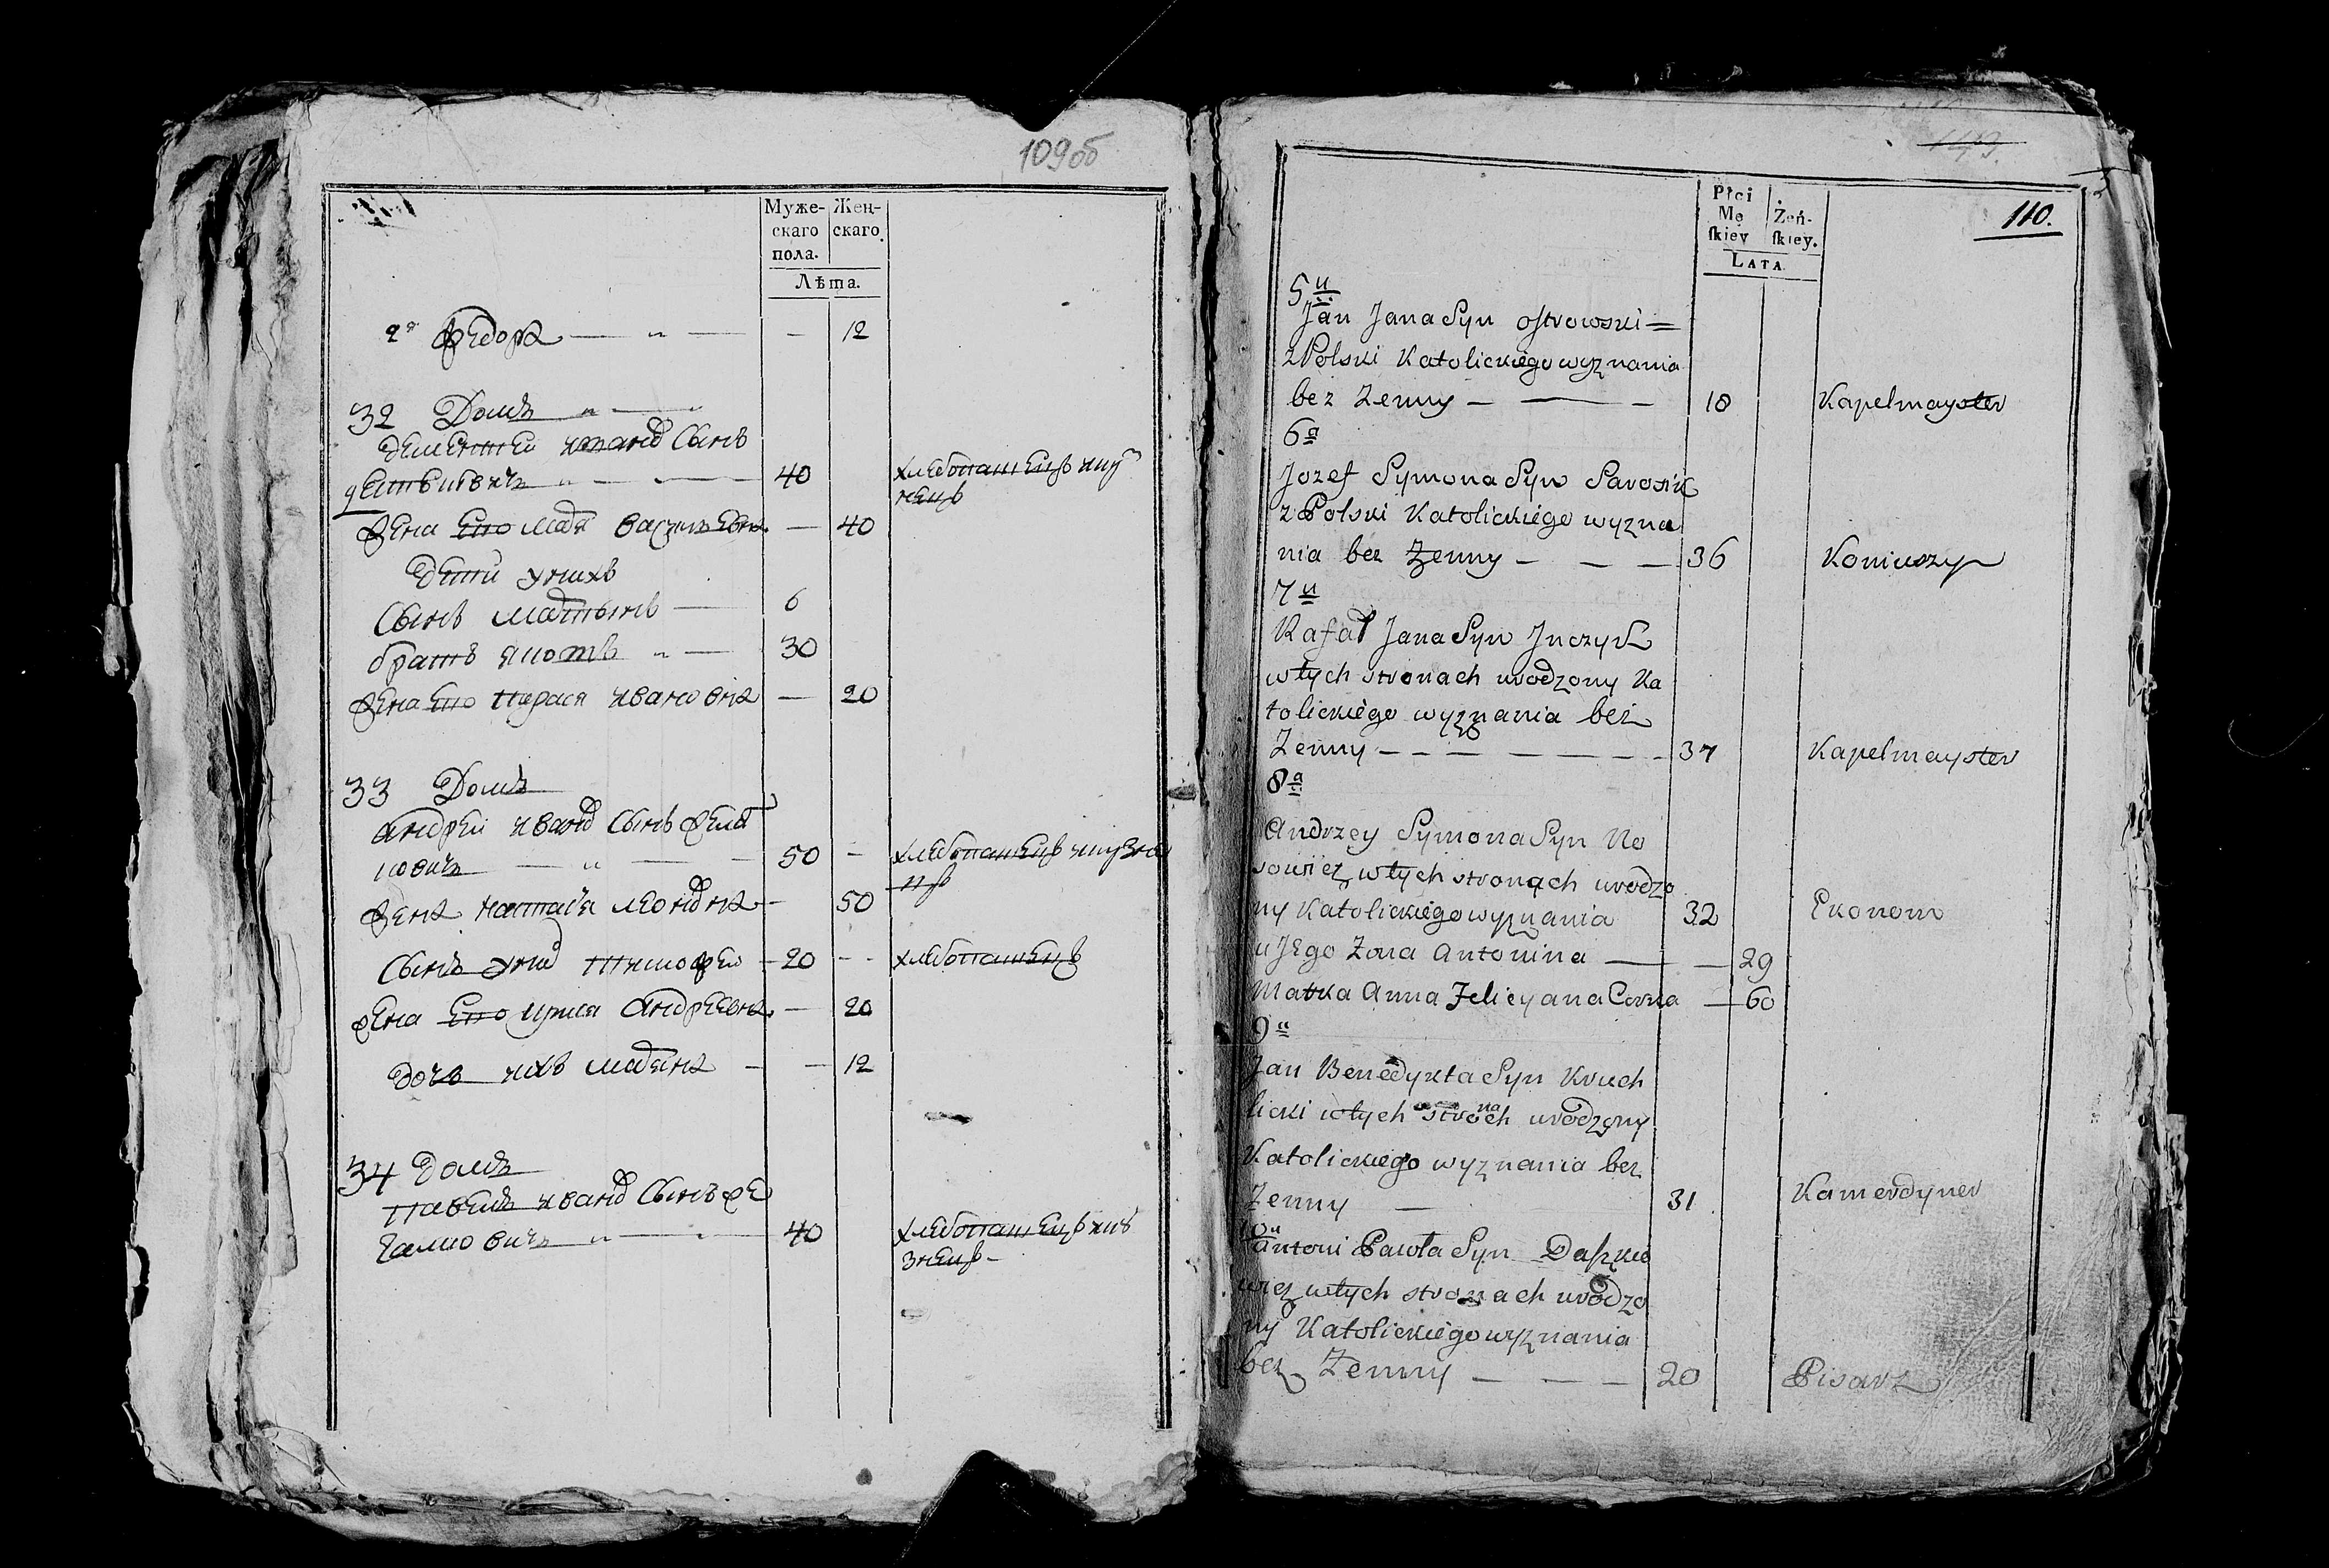 109об
Муже-
скаго
пола.
Жен-
скаго.
Лѣта.
2я Федора — „ — — 12
32 Домъ „
Дементей Иванов Сынъ
40 хлебопашецъ
жена Его мадя васильевна — 40
дети у них
Сынъ мартынъ — 6
братъ „ — 30
жена Его Парася Ивановна — 20
33 Домъ
андрей Иванов Сынъ
новичъ — „ — 50 - хлебопашецъ
жена настася — 50
Сынъ у них Тимофей — 20 - - хлебопашецъ
жена Его андреевна — 20
дочь их марьяна — — 12
34 домъ
Павелъ Иванов Сынъ
„ — „ — 40 хлебопашецъ
143.
110.
Płci
Mę
skiey
Żeń-
skiey.
LATA
5a
Jan Jana Syn ostrowski =
z Polski Katolickiego wyznania
bez Zenny — — — 18 Kapelmayster
6a
Jozef Symona Syn
z Polski Katolickiego wyzna
nia bez Zenny — — — 36 Koniuszy
7a
Rafał Jana Syn Juczyk
w tych stronach urodzony Ka
tolickiego wyznania bez
Zenny — — — — — — 37 Kapelmayster
8a
Andrzey Symona Syn No
sowicz w tych stronach urodzo
ny Katolickiego wyznania 32 Ekonom
u Jego Zona Antonina — — 29
Matka Anna Felicyana Corka — 60
9a
Jan Benedykta Syn Kruch
licki w tych stronach urodzony
Katolickiego wyznania bez
Zenny — 31 Kamerdyner
10a
Antoni Pawła Syn Daszke
wicz w tych stronach urodzo
ny Katolickiego wyznania
bez Zenny — — — 20 Pisarz